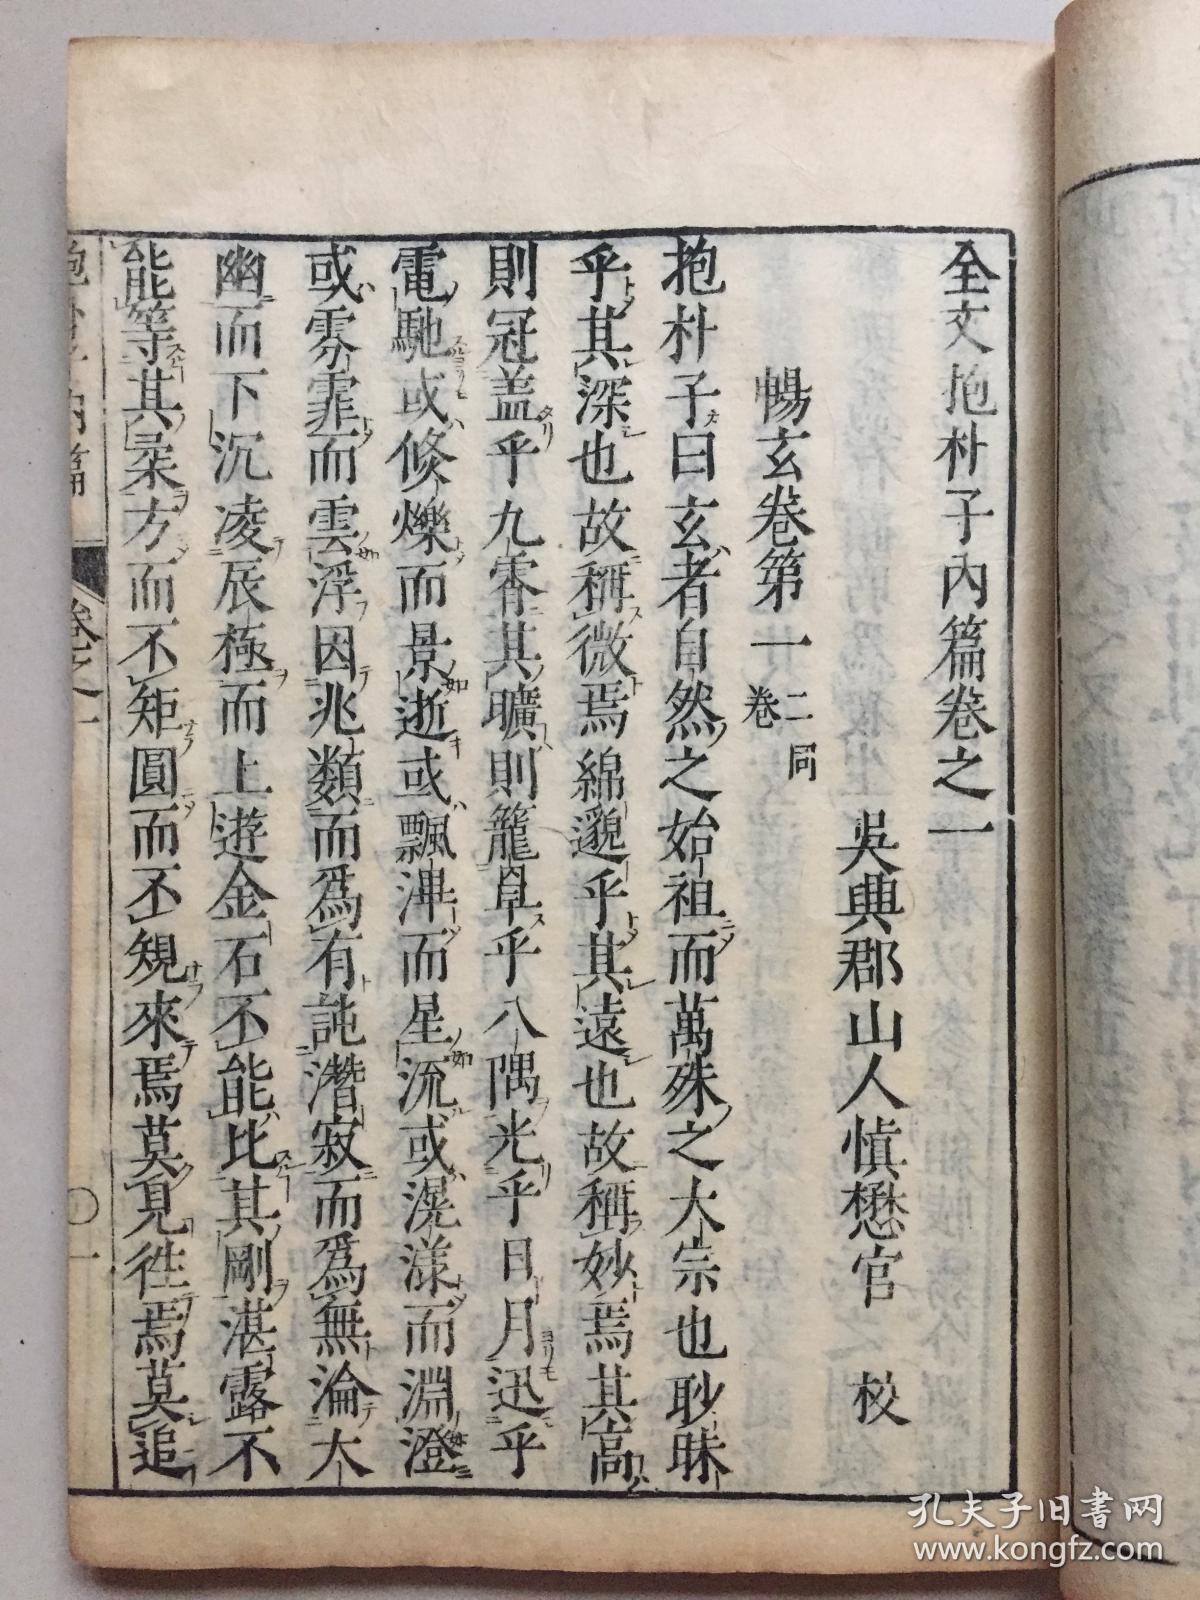 全文抱朴子內篇卷之一
吳興郡山人慎懋官 校
暢玄卷第一 二同卷
抱朴子曰玄者自然之始祖而萬殊之大宗也眇昧
乎其深也故稱微焉綿邈乎其遠也故稱妙焉其高
則冠盖乎九霄其曠則籠罩乎八隅光乎日月迅乎
電馳或倏爍而景逝或飄滭而星流或滉漾而淵澄
或雰霏而雲浮因兆類而爲有託潛寂而爲無淪大
幽而下沉凌辰極而上遊金石不能比其剛湛露不
能等其柔方而不矩圓而不規來焉莫見徃焉莫追
抱朴子內篇 卷之一 〇一
孔夫子旧书网
www.kongfz.com